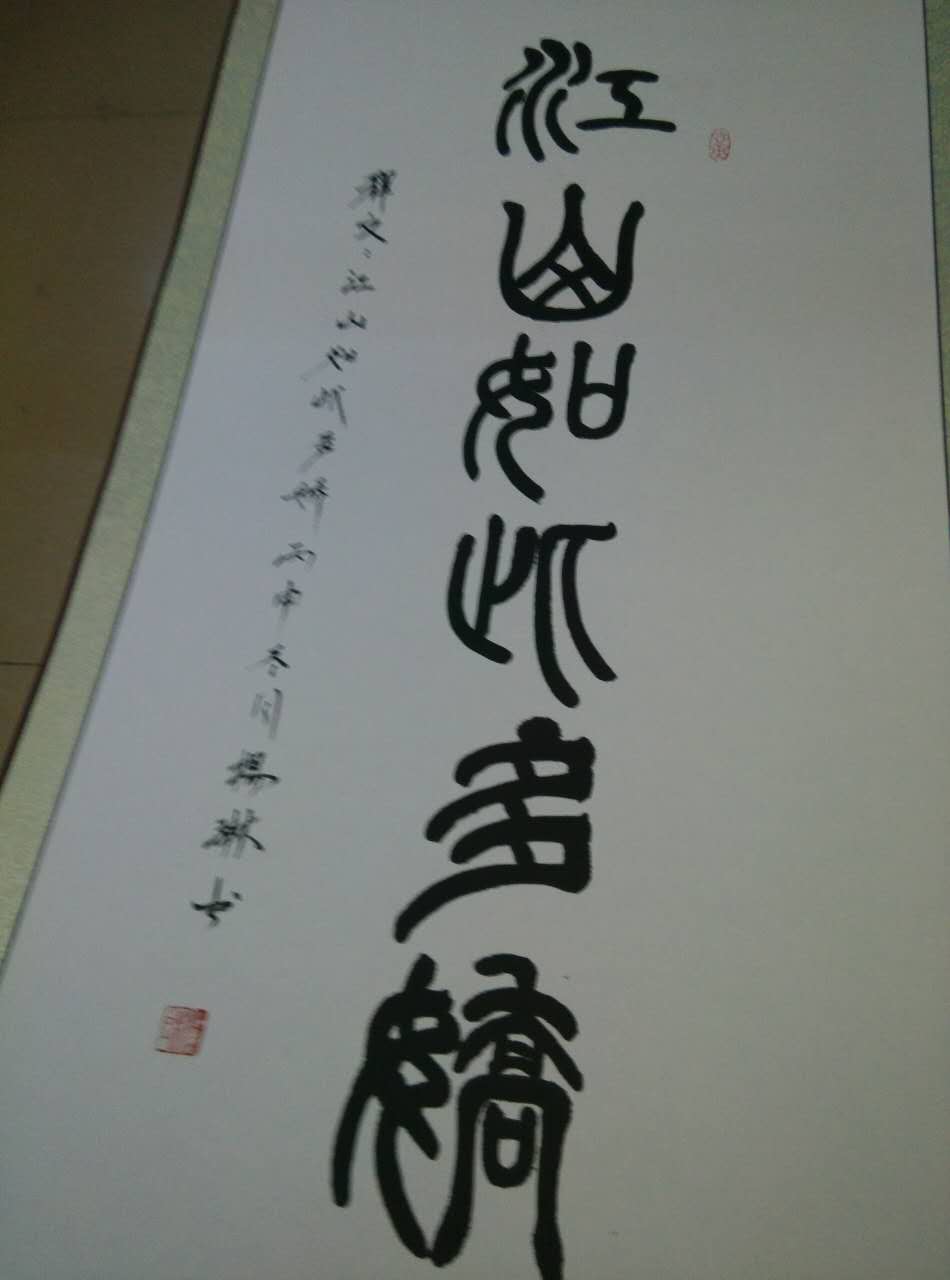 江山如此多嬌
釋文：江山如此多嬌丙申冬月楊琳书